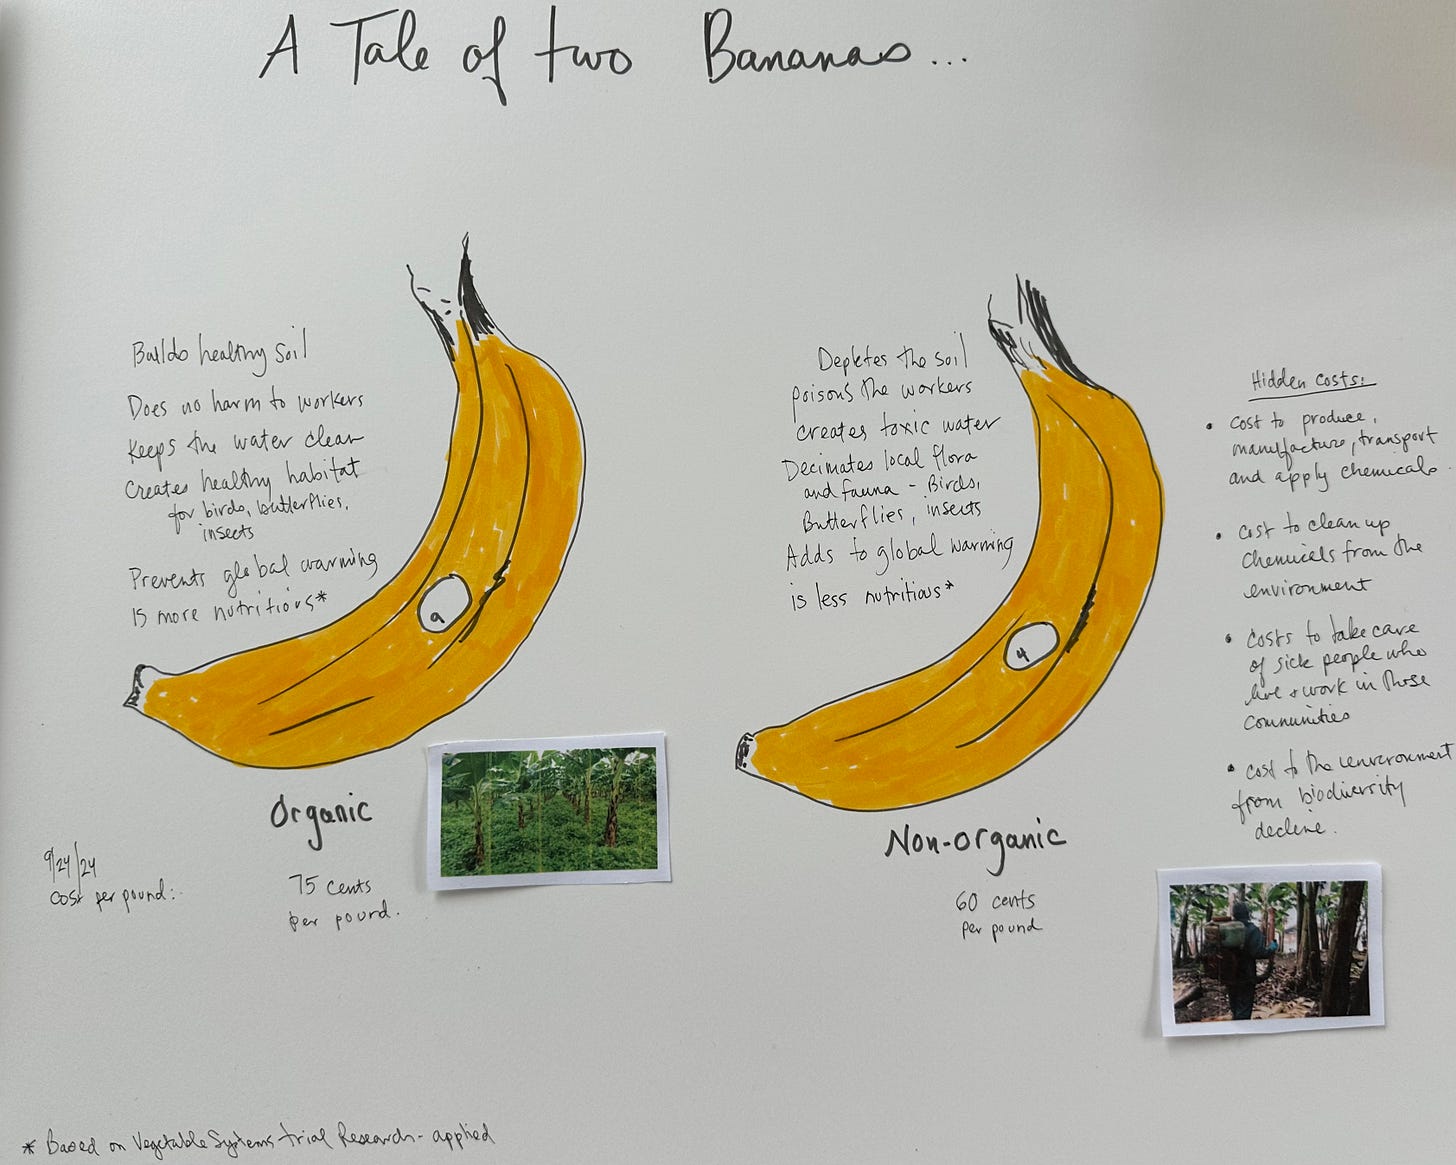 A Tale of two Bananas...
Builds healthy soil
Does no harm to workers
Keeps the water clean
Creates healthy habitat
for birds, butterflies,
insects
Prevents global warming
is more nutritious*
9
Organic
9/24/24
Cost per pound:
75 cents
per pound.
Depletes the soil
poisons the workers
creates toxic water
Decimates local flora
and fauna - Birds,
Butterflies, insects
Adds to global warming
is less nutritious*
4
Non-organic
60 cents
per pound
Hidden costs:
• cost to produce,
manufacture, transport
and apply chemicals.
• Cost to clean up
chemicals from the
environment
• costs to take care
of sick people who
live + work in those
communities
• cost to the environment
from biodiversity
decline.
* Based on Vegetable Systems trial Research - applied